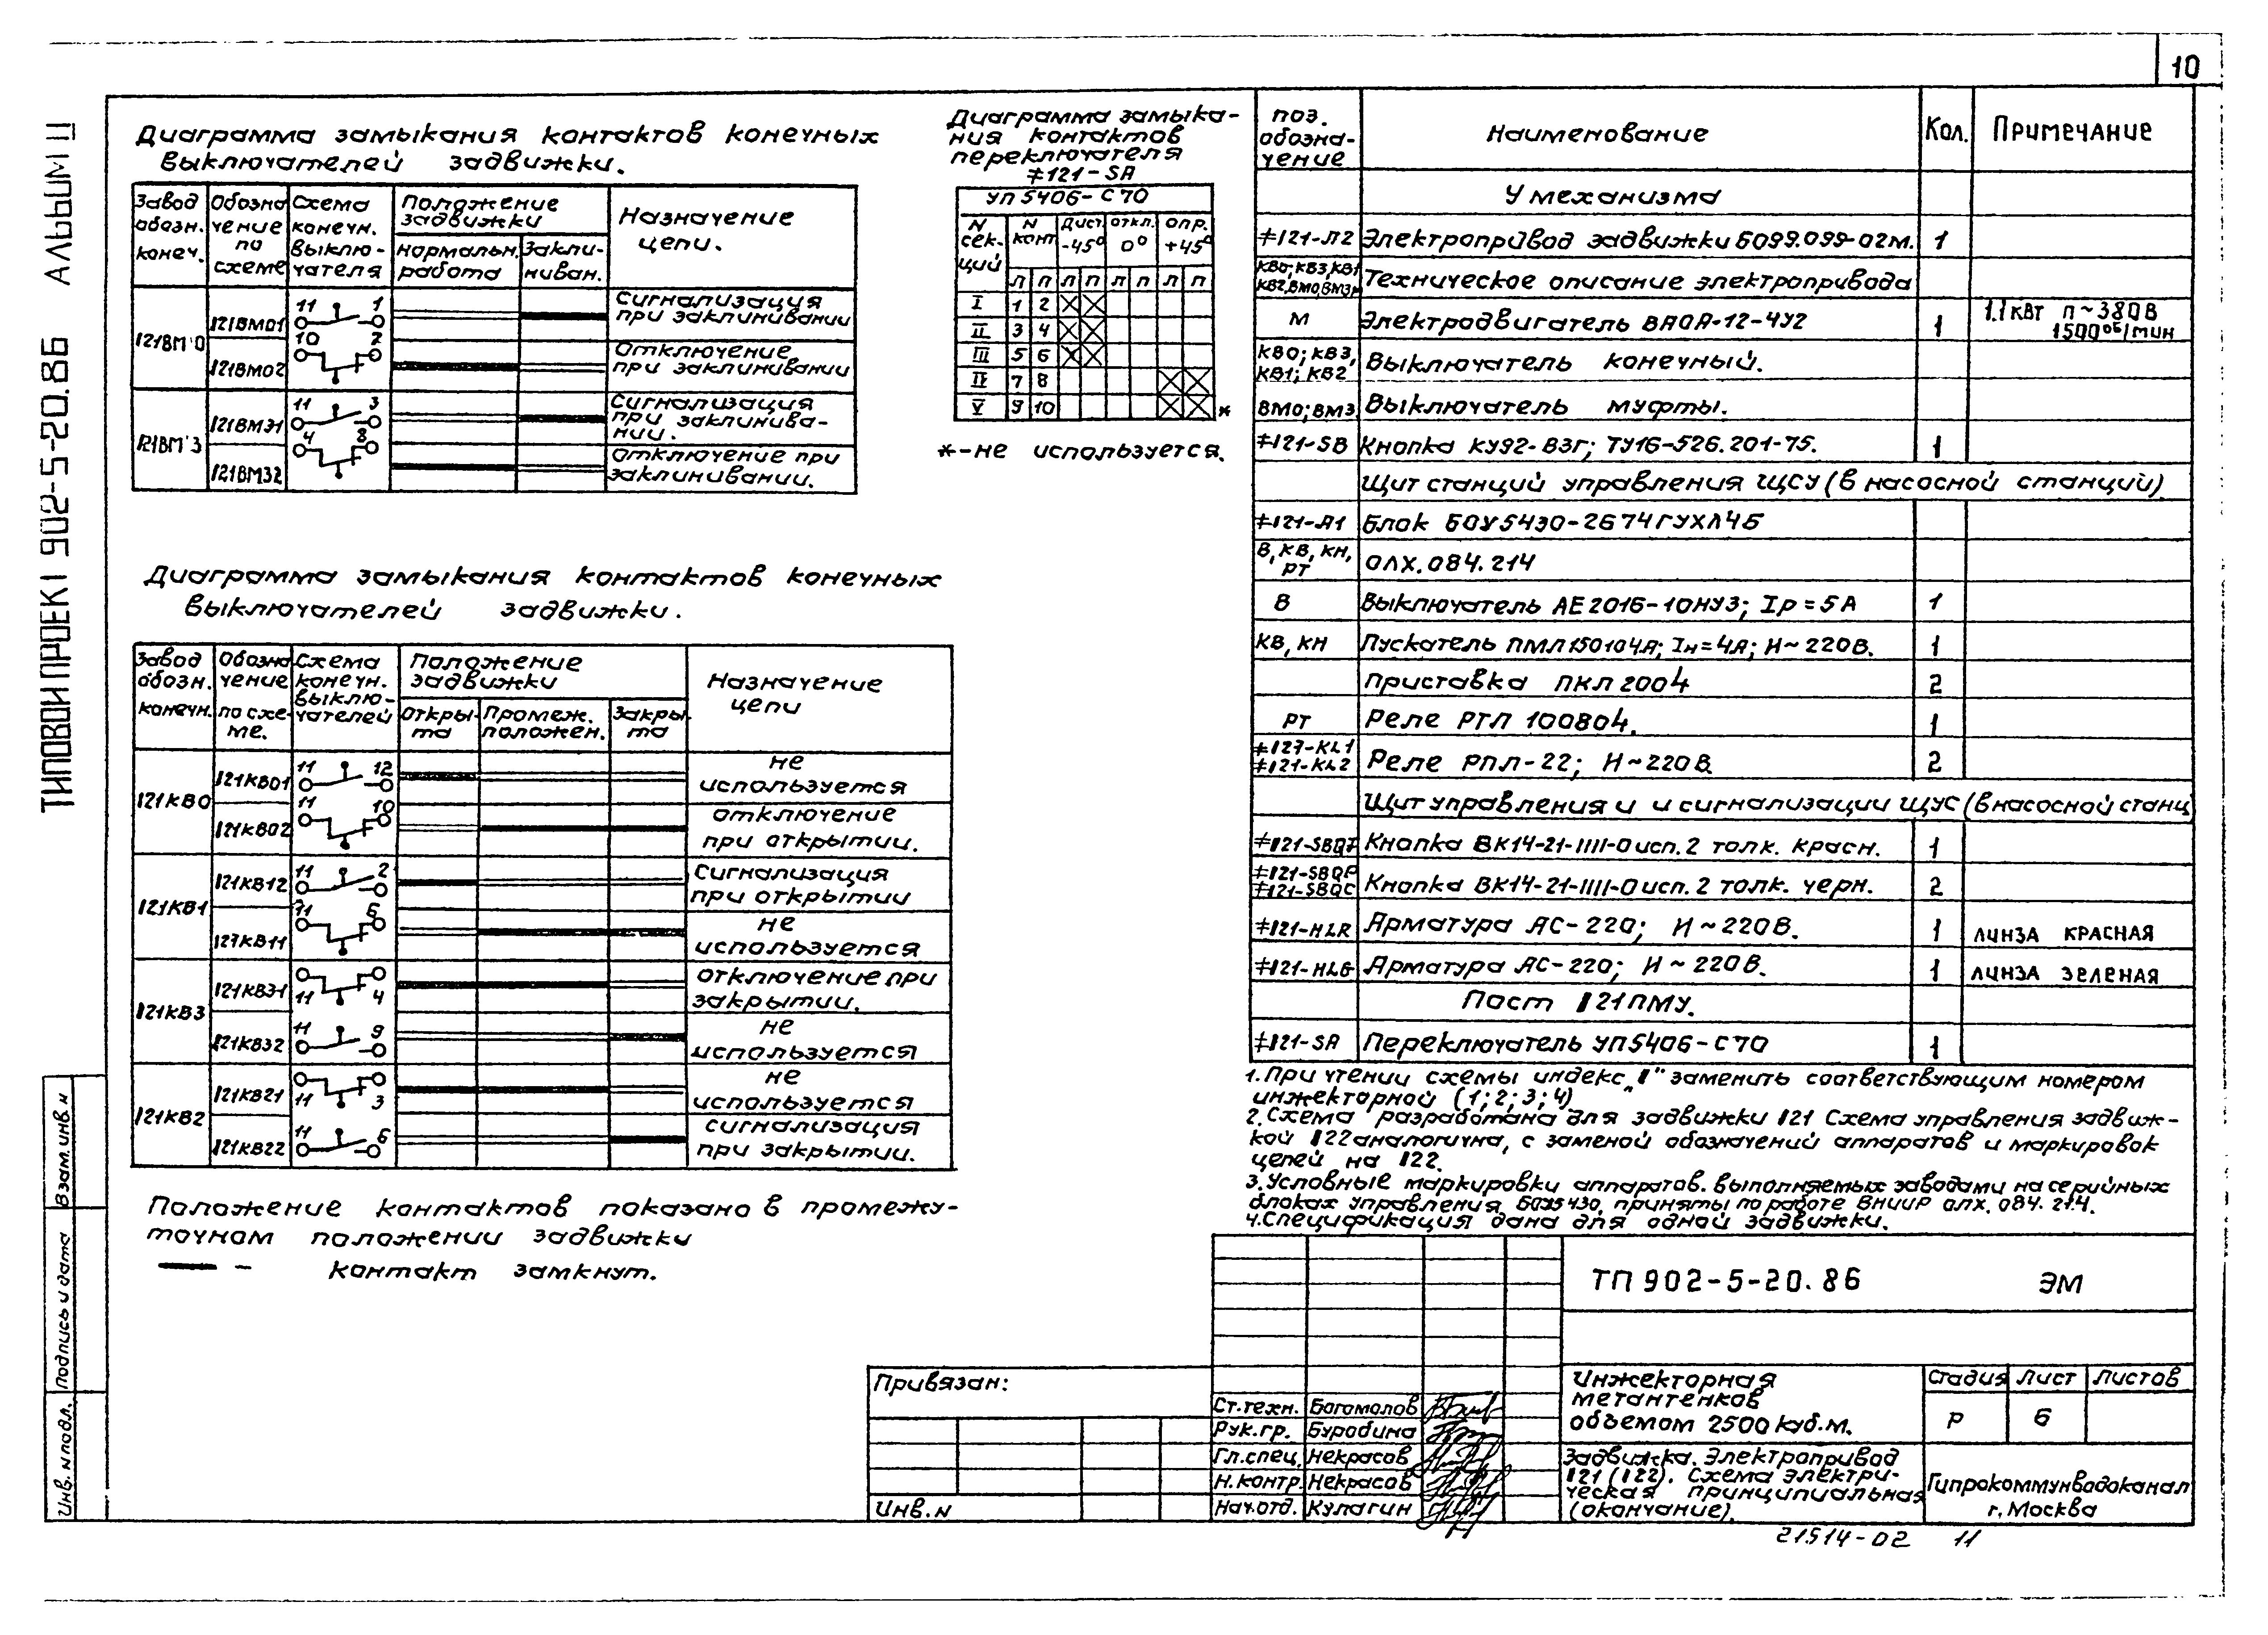 10
ТИПОВОЙ ПРОЕКТ 902-5-20.86 АЛЬБОМ II
Диаграмма замыкания контактов конечных
выключателей задвижки.
Завод обозн. конеч.
Обозначение по схеме
Схема конечн. выключателя
Положение задвижки
нормальн. работа
Заклиниван.
Назначение цепи.
121ВМ'О
121ВМ01
11 1
Сигнализация при заклинивании
121ВМ02
10 2
Отключение при заклинивании
121ВМ'З
121ВМ31
11 3
Сигнализация при заклинивании.
121ВМ32
4 8
Отключение при заклинивании.
Диаграмма замыкания контактов конечных
выключателей задвижки.
Завод обозн. конечн.
Обозначение по схеме.
Схема конечн. выключателей
Положение задвижки
Открыта
Промеж. положен.
Закрыта
Назначение цепи
121КВ0
121КВ01
11 12
не используется
121КВ02
11 10
отключение при открытии.
121КВ1
121КВ12
11 2
Сигнализация при открытии
127КВ11
11 6
не используется
121КВ3
121КВ31
11 4
отключение при закрытии.
121КВ32
11 9
не используется
121КВ2
121КВ21
11 3
не используется
121КВ22
11 6
сигнализация при закрытии.
Положение контактов показано в промежу-
точном положении задвижки
— контакт замкнут.
Диаграмма замыка-
ния контактов
переключателя
≠121-SA
УП 5406-С70
N секций
N конт
Дист. -45°
откл. 0°
опр. +45°
Л П Л П Л П Л П
I 1 2 X X
II 3 4 X X
III 5 6 X X
IV 7 8 X X
V 9 10 X X *
*-не используется.
поз. обозначение
Наименование
Кол.
Примечание
У механизма
≠121-Л2 Электропривод задвижки Б099.099-02м. 1
КВ0; КВ3, КВ1 КВ2, ВМ0, ВМ3, М Техническое описание электропривода
М Электродвигатель ВАОА-12-4У2 1 1.1 кВт п~380В 1500 об/мин
КВ0; КВ3, КВ1; КВ2 Выключатель конечный.
ВМ0; ВМ3. Выключатель муфты.
≠121-SB Кнопка КУ92-ВЗГ; ТУ16-526.201-75. 1
Щит станций управления ЩСУ (в насосной станций)
≠121-А1 Блок БОУ5430-2674ГУХЛ4Б
В, КВ, КН, РТ ОЛХ.084.214
В Выключатель АЕ2016-10НУ3; Iр=5А 1
КВ, КН Пускатель ПМЛ150104А; Iн=4А; И~220В. 1
приставка ПКЛ2004 2
РТ Реле РТЛ 100804. 1
≠127-KL1 ≠121-KL2 Реле РПЛ-22; И~220В. 2
Щит управления и и сигнализации ЩУС (в насосной станц
≠121-SBQT Кнопка ВК14-21-1111-0 исп. 2 толк. красн. 1
≠121-SBQP ≠121-SBQC Кнопка ВК14-21-1111-0 исп. 2 толк. черн. 2
≠121-HLR Арматура АС-220; И~220В. 1 ЛИНЗА КРАСНАЯ
≠121-HLG Арматура АС-220; И~220В. 1 ЛИНЗА ЗЕЛЕНАЯ
Пост 121ПМУ.
≠121-SA Переключатель УП5406-С70 1
1. При чтении схемы индекс „1" заменить соответствующим номером
инжекторной (1; 2; 3; 4)
2. Схема разработана для задвижки 121 Схема управления задвиж-
кой 122 аналогична, с заменой обозначений аппаратов и маркировок
цепей на 122.
3. Условные маркировки аппаратов. выполняемых заводами на серийных
блоках управления БОУ5430, приняты по работе ВНИИР ОЛХ.084.214.
4. Спецификация дана для одной задвижки.
ТП 902-5-20.86 ЭМ
Привязан:
Инв. N
Ст.техн. Богомолов
Рук.гр. Бурабина
Гл.спец. Некрасов
Н.контр. Некрасов
Нач.отд. Кулагин
Инжекторная
метантенков
объемом 2500 куб.м.
Стадия Лист Листов
Р 6
Задвижка. Электропривод
121 (122). Схема электри-
ческая принципиальная
(окончание).
Гипрокоммунводоканал
г. Москва
21514-02 11
Взам. инв. N
Подпись и дата
Инв. N подл.